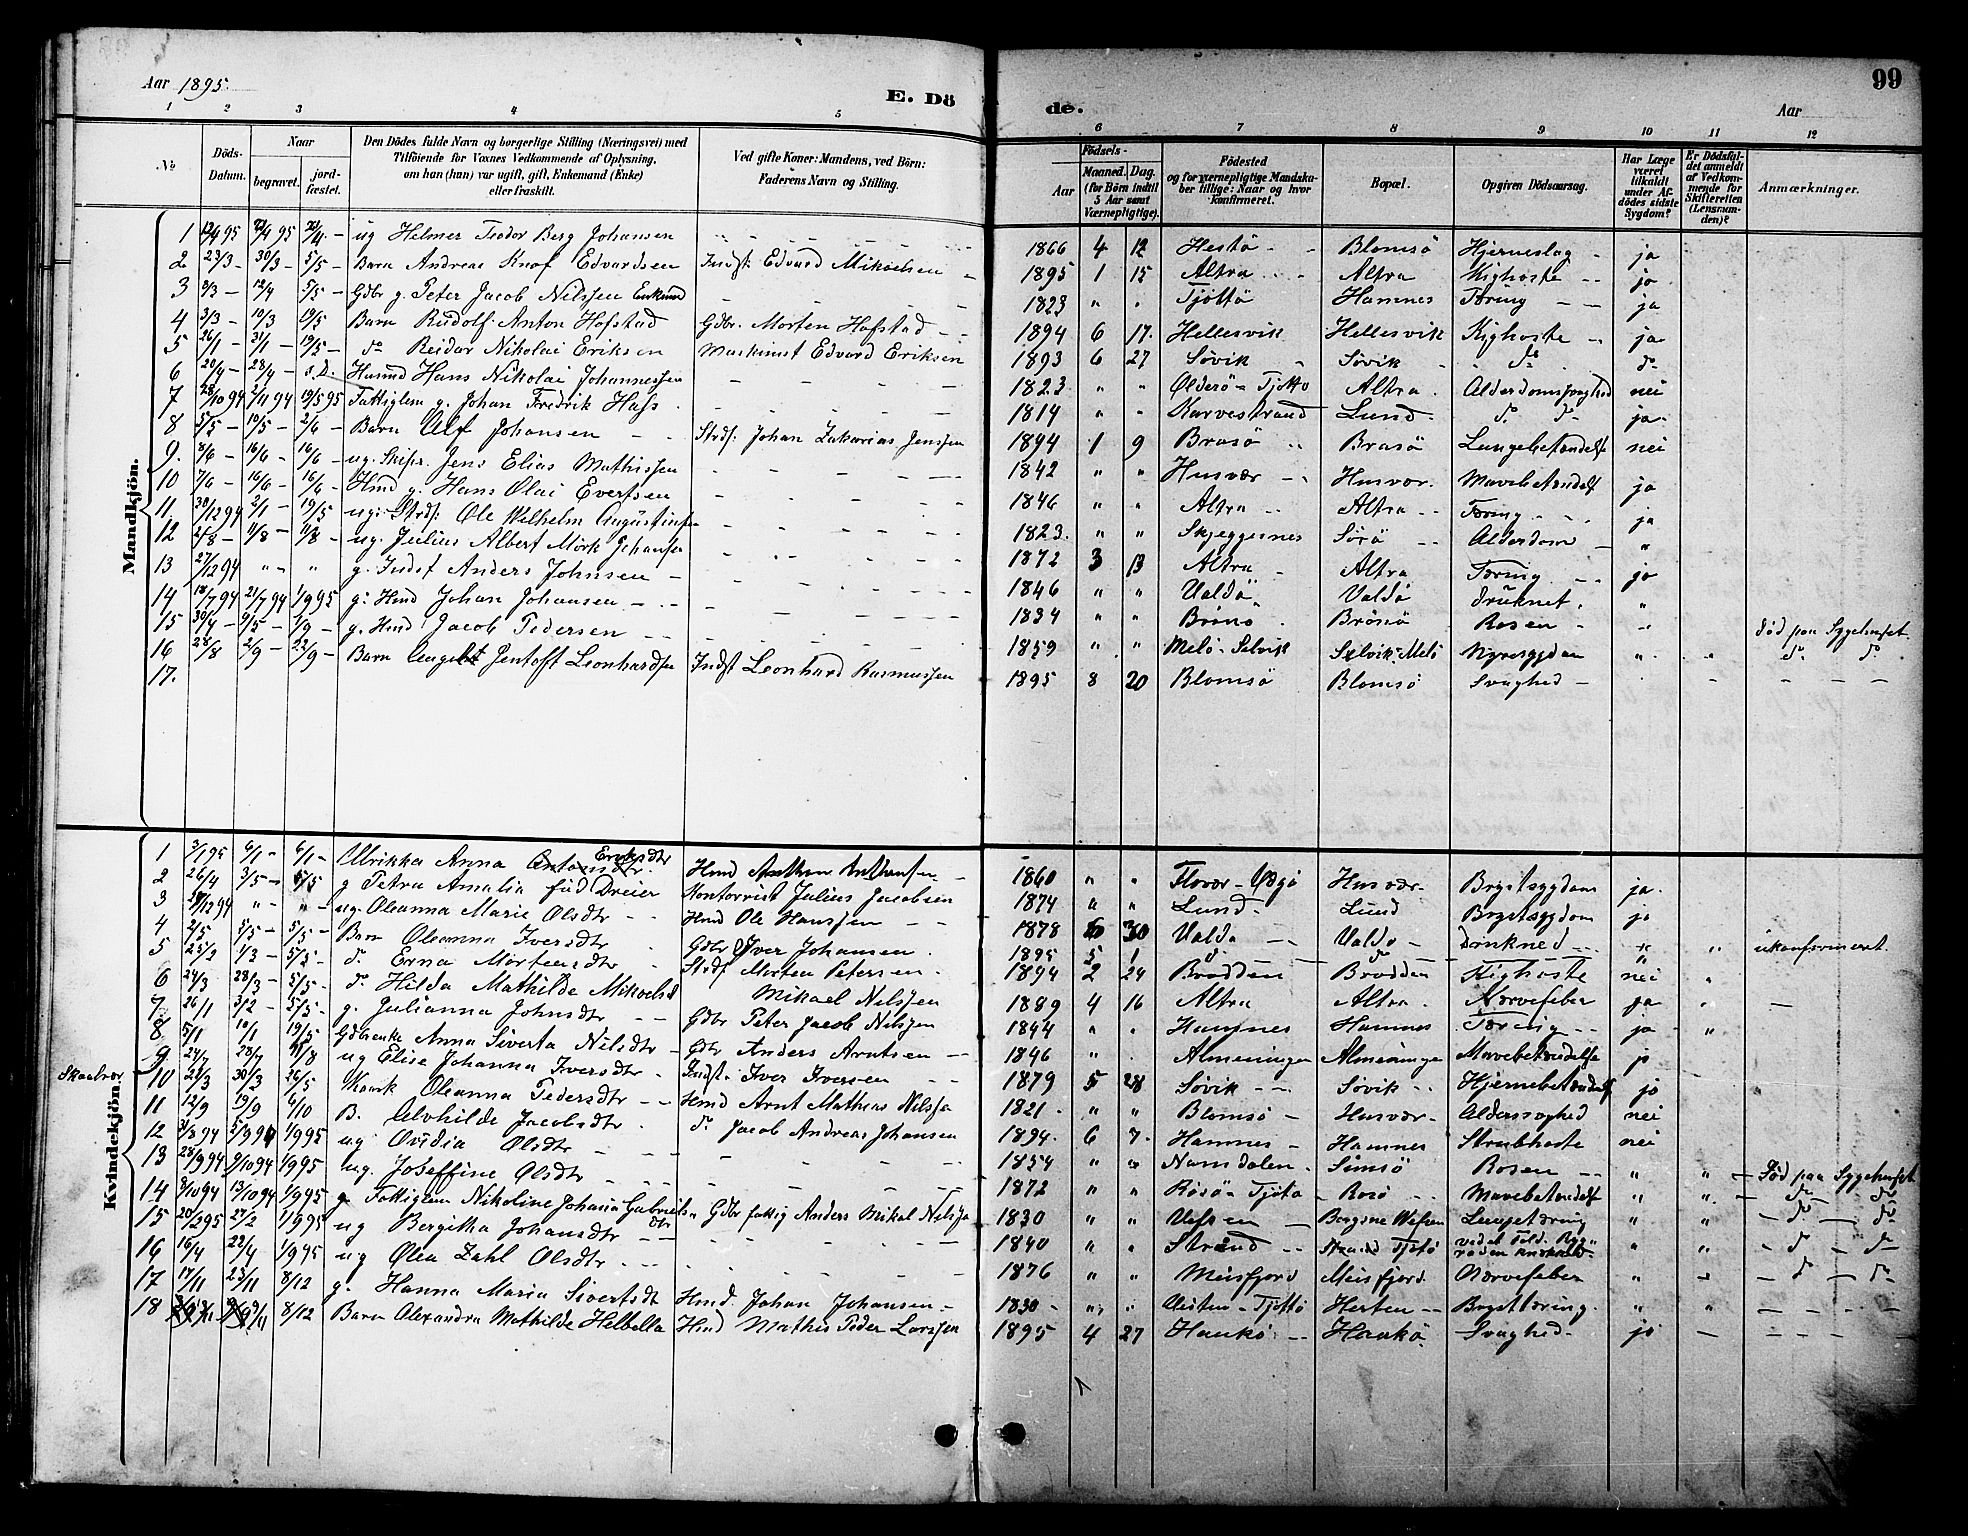 Aar 1895.
E. Dö
de.
Aar
99
1 2 3 4 5 6 7 8 9 10 11 12
No
Döds-Datum.
Naar
begravet.
jord-fæstet.
Den Dödes fulde Navn og borgerlige Stilling (Næringsvei) med Tilföiende for Voxnes Vedkommende af Oplysning, om han (hun) var ugift, gift, Enkemand (Enke) eller fraskilt.
Ved gifte Koner: Mandens, ved Börn: Faderens Navn og Stilling.
Födsels-
Aar
Maaned. Dag.
(for Börn indtil 5 Aar samt Værnepligtige).
Födested og for værnepligtige Mandskaber tillige: Naar og hvor konfirmeret.
Bopæl.
Opgiven Dödsaarsag.
Har Læge været tilkaldt under Afdödes sidste Sygdom?
Er Dödsfaldet anmeldt af Vedkommende for Skifteretten (Lensmanden)?
Anmærkninger.
Mandkjön.
1 12/4 95 ug Helmer Teodor Berg Johansen 1866 4 12 Hestö Blomsö Hjerneslag ja
2 23/3 30/3 5/5 Barn Andreas Knof Edvardsen Indst Edvard Mikaelsen 1895 1 15 Altra Altra Kighoste ja
3 12/4 5/5 Gdbr g. Peter Jacob Nilssen Enkmd 1823 " " Tjöttö Hamnes Tæring ja
4 3/3 10/3 19/5 Barn Rudolf Anton Hofstad Gdbr. Morten Hofstad 1894 6 17 Hellesvik Hellesvik Kighoste ja
5 26/1 31/1 19/5 do Reidar Nikolai Eriksen Maskinist Edvard Eriksen 1893 6 27 Søvik Søvik do do
6 20/4 28/4 s.D. Husmd Hans Nikolai Johannessen 1823 " " Ølderö Tjøtto Altra Alderdomssvaghed nei
7 28/10 94 2/11 94 19/5 95 Fattiglem g. Johan Fredrik Hafs 1814 " " Karvestrand Lund do do ja
8 5/5 10/5 2/6 Barn Alf Johansen Strds. Johan Zakarias Jenssen 1894 1 9 Brasö Brasö Lungebetændelse nei
9. 16/6 16/6 ug. Skipr. Jens Elias Mathissen 1842 " " Husvær Husvær Mavebetændelse ja
10 7/6 16/6 16/6 Hmd g. Hans Olai Evertsen 1846 " " Altra Altra Tæring ja
11. 30/12 94 2/1 19/5 ug. Strds: Ole Wilhelm Augustinsen 1823. " " Skjeggesnes Sörö Alderdom "
12 2/8 11/8 11/8 ug. Julius Albert Mörk Johansen 1872 3 13 Altra Altra Tæring ja
13 27/12 94 " " g. Indst Anders Johnsen 1846 " " Valdö Valdö druknet "
14 18/7 94 21/7 94 1/9 95 g. Hmd Johan Johansen 1834 " " Brönö Brösö Rosen " död paa Sygehuset
15 30/4 9/5 1/9 g. Hmd Jacob Pedersen 1859 " " Melö-Selvik Selvik-Melö Nyresygdom " " do do
16 28/8 2/9 22/9 Barn Angelt Jentoft Leonhardsen Indst Leonhard Rasmussen 1895 8 20 Blomsö Blomsö Svaghed
17.
Kvindekjön.
Skaalvær
1 3/1 95 6/1 6/1 Ulrikka Anna Antonsdtr. Eriksdtr Hmd 1860 " " Flovær Husvær Brystsygdom ja
2 26/4 3/5 5/5 g Petra Amalia föd Dreier Kontorrist Julius Jacobsen 1874 " " Lund Lund Brystsygdom ja
3 12 94 " " ug. Oleanna Marie Olsdtr Hmd Ole Hanssen 1878 6 30 Valdö Valdö Druknet " " ukonfirmeret.
4 2/5 5/5 5/5 Barn Oleanna Iversdtr Gdbr Iver Johansen 1895 5 1 do do
5 1/3 5/5 do Erna Mortensdtr Strds Morten Petersen 1894 2 24 Brodden Brodden Kighoste nei "
6 24/3 28/3 5/5 do Hilda Mathilde Mikaelsd Mikael Nilssen 1889 4 16 Altra Altra Nervefeber ja
7 26/1 3/2 5/5 g. Julianna Johnsdtr Gdbr Peter Jacob Nilssen 1844 " " Hamnes Hamnes Tæring ja "
8 5/1 10/1 19/5 Gdbrenke Anna Siverta Nilsdtr Gdbr Anders Arntsen 1846 " Almeningen Almeninge Mavebetændelse ja
9 24/7 28/7 ug Elise Johanna Iversdtr Indst. Iver Iversen 1879 5 28 Søvik Søvik Hjernebetændelse ja
10 30/3 26/5 Oleanna Pedersdtr Hmd Arnt Mathias Nilssen 1821 " " Blomsö Husvær Alderssvaghed nei
11 12/9 19/9 6/10 B. Alvhilde Jacobsdtr do Jacob Andreas Johansen 1894. 6 7 Hamnes Hamnes Strubehoste nei
12 1/9 95 ug Ovidia Olsdtr 1854 " " Namdalen Simsö Rosen " " Död paa Sygehuset
13 28/9 94 9/10 94 1/9 95 ug. Joseffine Olsdtr 1872 " " Rösö Tjöta Rosö Mavebetændelse " " do do
14 8/10 94 13/10 94 1/9 95 g Fattiglem Nikoline Johana Gabrielsdtr Gdbr fattig Anders Mikal Nilssen 1830 " " Vefsen Bergsne Vefsen Lungetæring " " do do
15 20/2 95 27/2 1/9 95 ug Bergitta Johansdtr 1840 " " Strand Strand Tjøtö " " do do
16 16/4 22/4 1/9 95 ug Olea Zahl Olsdtr 1876 " " Meisfjord Meisfjord Nervefeber " do do
17 17/11 23/11 8/12 g. Hanna Maria Sivertsdt Hmd Johan Johansen 1830 " " Tjöttö Herten Brysttæring "
18 8/12 Barn Alexandra Mathilde Helbella Hmd Mathis Peder Larssen 1895 4 27 Haukö Haukö Svaghed ja